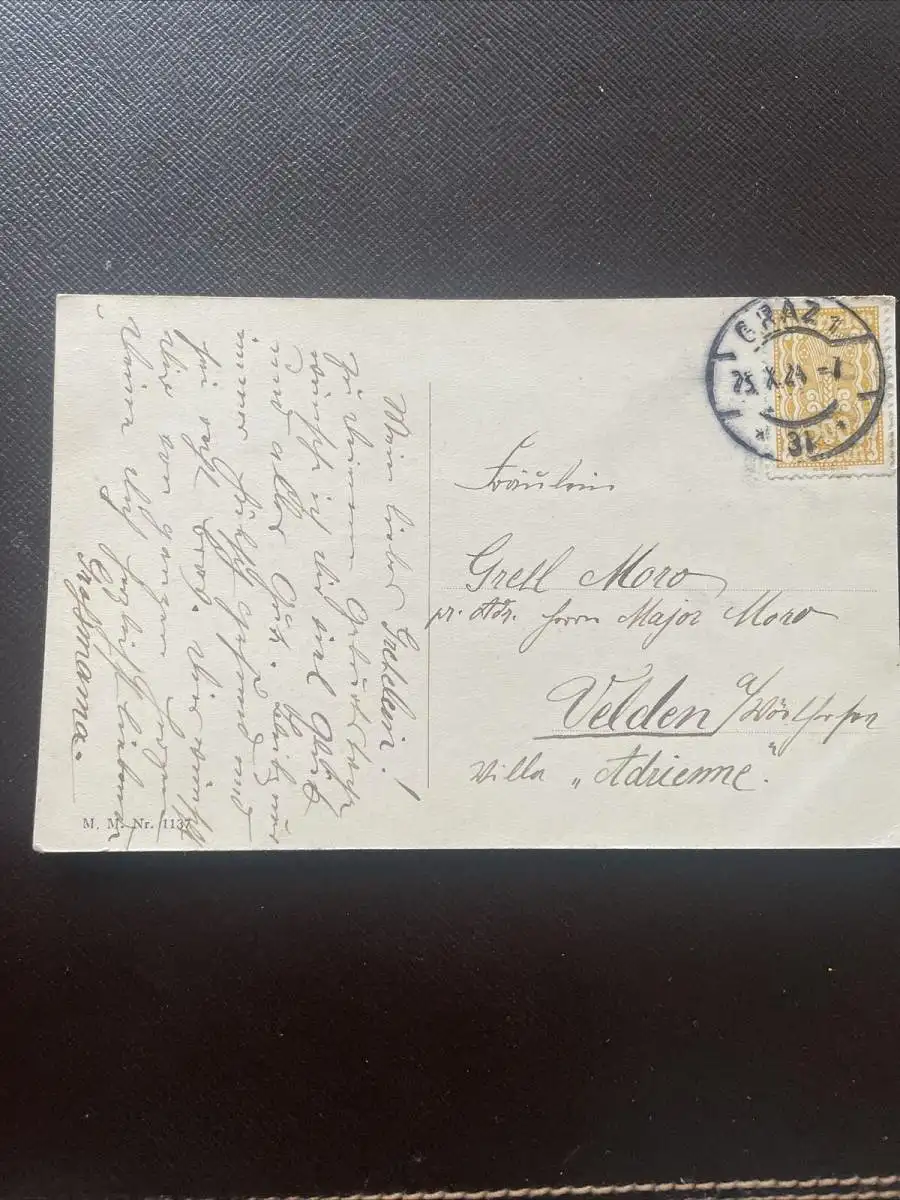 Mein liebes Gretelein!
Zu Deinem Geburtstage
wünsche ich Dir viel Glück
und alles Gute. Bleib nur
immer hübsch gesund und
sei recht brav. Dies wünscht
Dir von ganzem Herzen
Deine Dich liebende
Grossmama.
M. M. Nr. 1137
GRAZ 1
25. X. 24 - 7
* 3b *
Fräulein
Gretl Moro
pr. Adr. Herrn Major Moro
Velden a/Wörthersee
Villa „Adrienne."